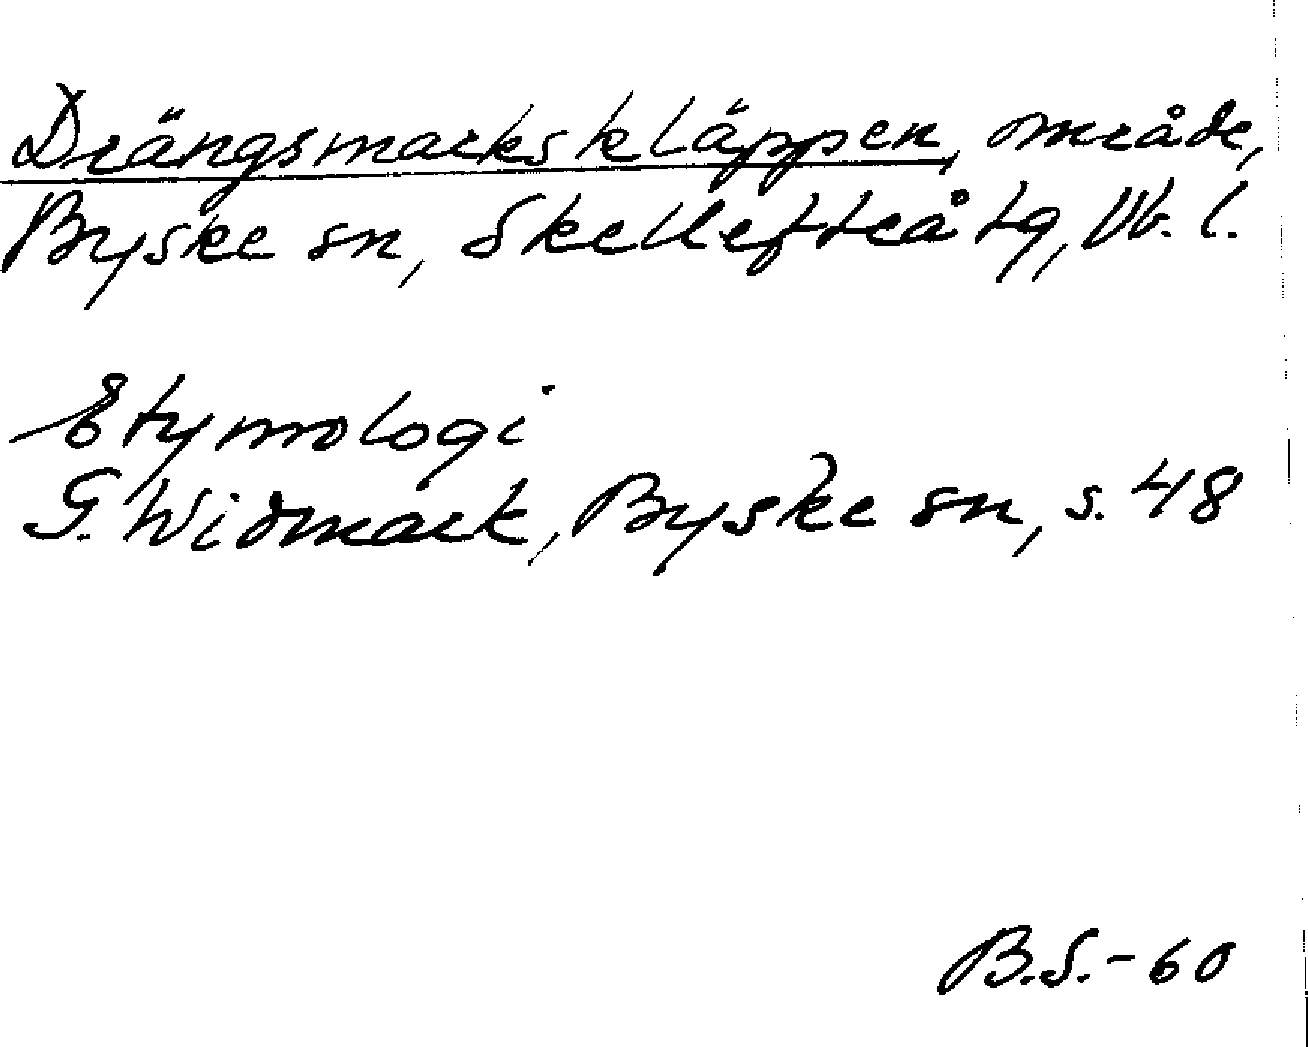 Drängsmarkskläppen, område,
Byske sn, Skellefteå tg, Vb. l.
Etymologi
G. Widmark, Byske sn, s. 48
B.S.-60